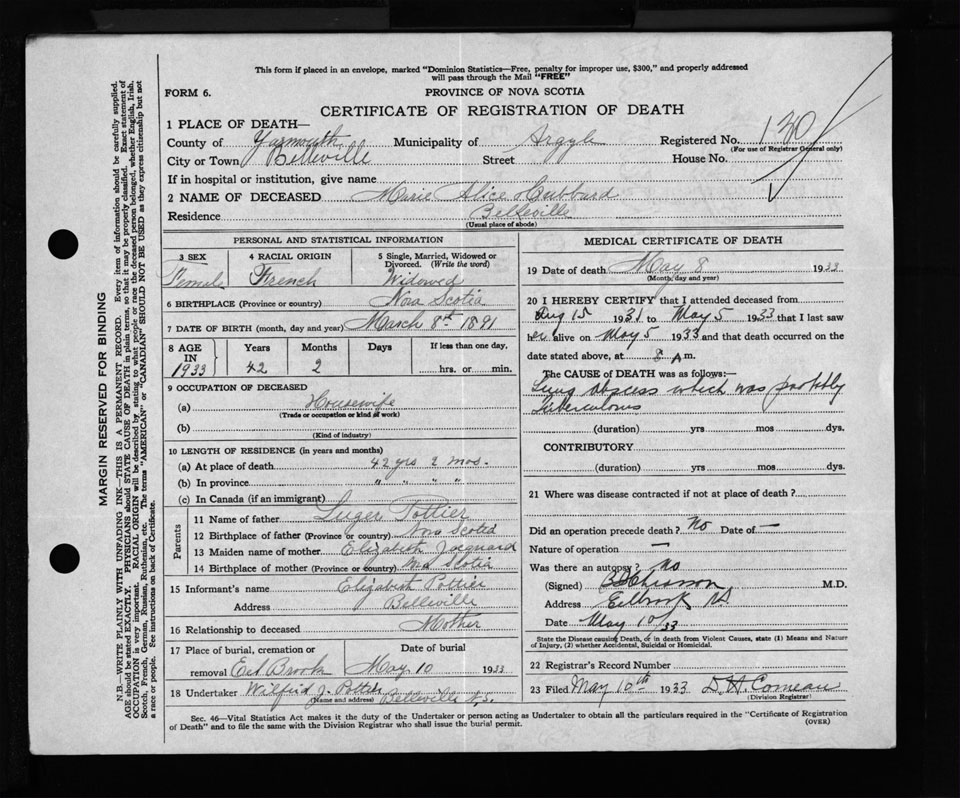 This form if placed in an envelope, marked "Dominion Statistics—Free, penalty for improper use, $300," and properly addressed
will pass through the Mail "FREE"
FORM 6.
PROVINCE OF NOVA SCOTIA
CERTIFICATE OF REGISTRATION OF DEATH
1 PLACE OF DEATH—
County of Yarmouth Municipality of Argyle Registered No. 130
(For use of Registrar General only)
City or Town Belleville Street House No.
If in hospital or institution, give name
2 NAME OF DECEASED Marie Alice Hubbard
Residence Belleville
(Usual place of abode)
PERSONAL AND STATISTICAL INFORMATION
3 SEX 4 RACIAL ORIGIN 5 Single, Married, Widowed or Divorced. (Write the word)
Female French Widowed
6 BIRTHPLACE (Province or country) Nova Scotia
7 DATE OF BIRTH (month, day and year) March 8th 1891
8 AGE IN 1933 Years Months Days If less than one day,
42 2 hrs. or min.
9 OCCUPATION OF DECEASED
(a) Housewife
(Trade or occupation or kind of work)
(b)
(Kind of industry)
10 LENGTH OF RESIDENCE (in years and months)
(a) At place of death 42 yrs 2 mos.
(b) In province " " " "
(c) In Canada (if an immigrant)
Parents
11 Name of father Luger Pottier
12 Birthplace of father (Province or country) Nova Scotia
13 Maiden name of mother Elizabeth Jacquard
14 Birthplace of mother (Province or country) Nova Scotia
15 Informant's name Elizabeth Pottier
Address Belleville
16 Relationship to deceased Mother
17 Place of burial, cremation or removal Date of burial
Eel Brook May 10 1933
18 Undertaker Wilfrid J. Pottier
(Name and address) Belleville N.S.
MEDICAL CERTIFICATE OF DEATH
19 Date of death May 8 1933
(Month, day and year)
20 I HEREBY CERTIFY that I attended deceased from
Aug 15 1931 to May 5 1933 that I last saw
her alive on May 5 1933 and that death occurred on the
date stated above, at 8 A m.
The CAUSE of DEATH was as follows:—
Lung abscess which was probably
Tuberculous
(duration) yrs mos dys.
CONTRIBUTORY
(duration) yrs mos dys.
21 Where was disease contracted if not at place of death?
Did an operation precede death? No Date of —
Nature of operation —
Was there an autopsy? No
(Signed) Chiasson M.D.
Address Eelbrook NS
Date May 10/33
State the Disease causing Death, or in death from Violent Causes, state (1) Means and Nature
of Injury, (2) whether Accidental, Suicidal or Homicidal.
22 Registrar's Record Number
23 Filed May 10th 1933 D. H. Comeau
(Division Registrar)
Sec. 46—Vital Statistics Act makes it the duty of the Undertaker or person acting as Undertaker to obtain all the particulars required in the "Certificate of Registration
of Death" and to file the same with the Division Registrar who shall issue the burial permit.
(OVER)
MARGIN RESERVED FOR BINDING
N.B.—WRITE PLAINLY WITH UNFADING INK—THIS IS A PERMANENT RECORD. Every item of information should be carefully supplied.
AGE should be stated EXACTLY. PHYSICIANS should STATE CAUSE OF DEATH in plain terms, so that it may be properly classified. Exact statement of
OCCUPATION is very important. RACIAL ORIGIN will be described by stating to what people or race the deceased person belonged, whether English, Irish,
Scotch, French, German, Russian, Ruthenian, etc. The terms "AMERICAN" or "CANADIAN" SHOULD NOT BE USED as they express citizenship but not
a race or people. See instructions on back of Certificate.